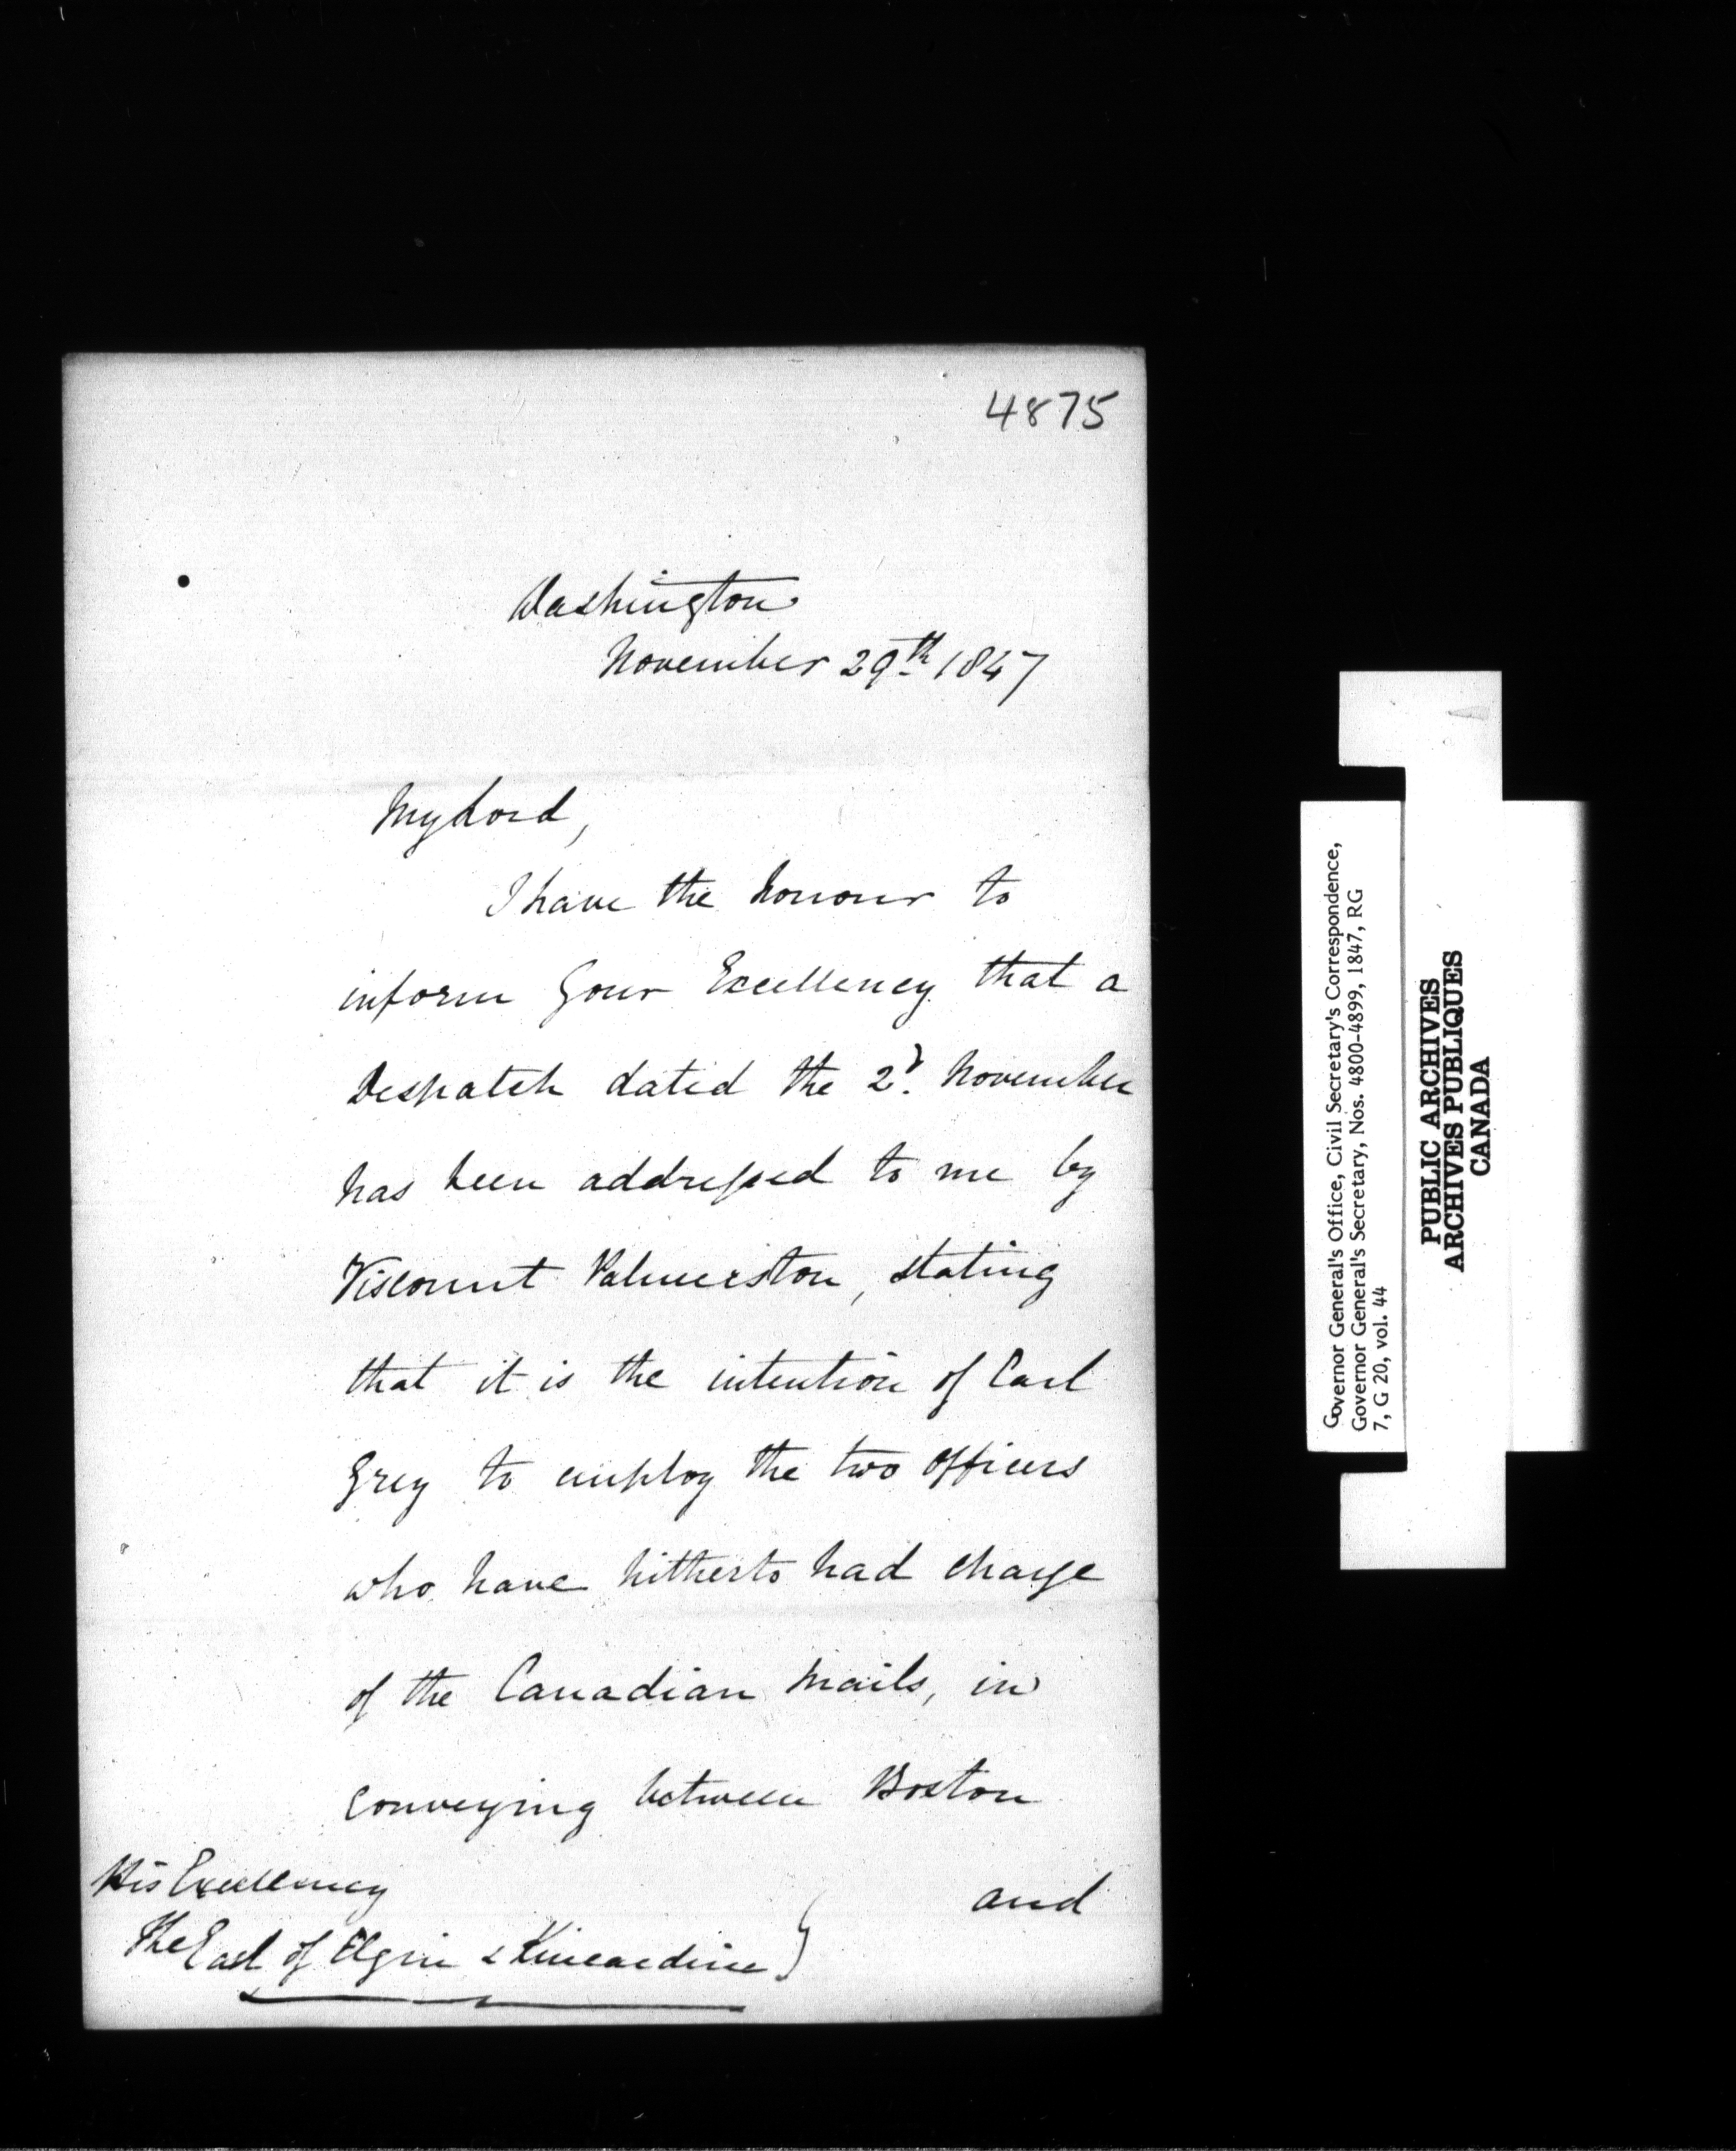 4875
Washington
November 29th 1847
My Lord,
I have the honour to
inform Your Excellency that a
Despatch dated the 2d. November
has been addressed to me by
Viscount Palmerston, stating
that it is the intention of Earl
Grey to employ the two officers
who have hitherto had charge
of the Canadian Mails, in
conveying between Boston
and
His Excellency
The Earl of Elgin & Kincardine }
Governor General's Office, Civil Secretary's Correspondence,
Governor General's Secretary, Nos. 4800-4899, 1847, RG
7, G 20, vol. 44
PUBLIC ARCHIVES
ARCHIVES PUBLIQUES
CANADA